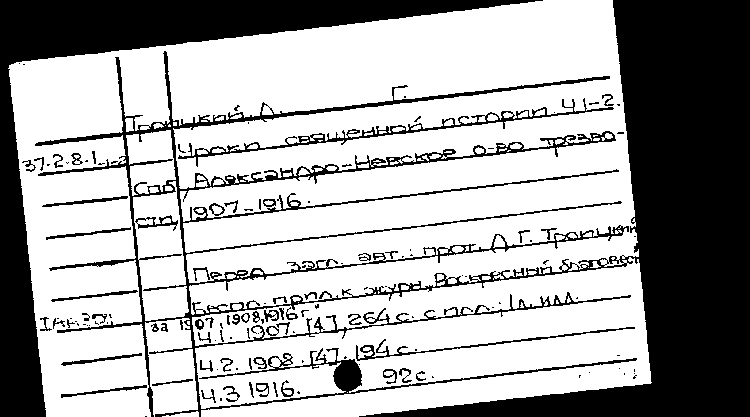 Троицкий Д. Г.
37.2.8.1 1-2 Уроки священной истории Ч1-2.
Спб, Александро-Невское о-во трезво-
сти, 1907-1916.
Перед загл. авт.: прот. Д. Г. Троицкий
Беспл. прил. к журн. „Воскресный благовест"
за 1907, 1908, 1916 г.
Ч.1. 1907. [4], 264 с. с илл.; 1 л. илл.
Ч.2. 1908. [4]. 194 с.
Ч.3 1916. 92 с.